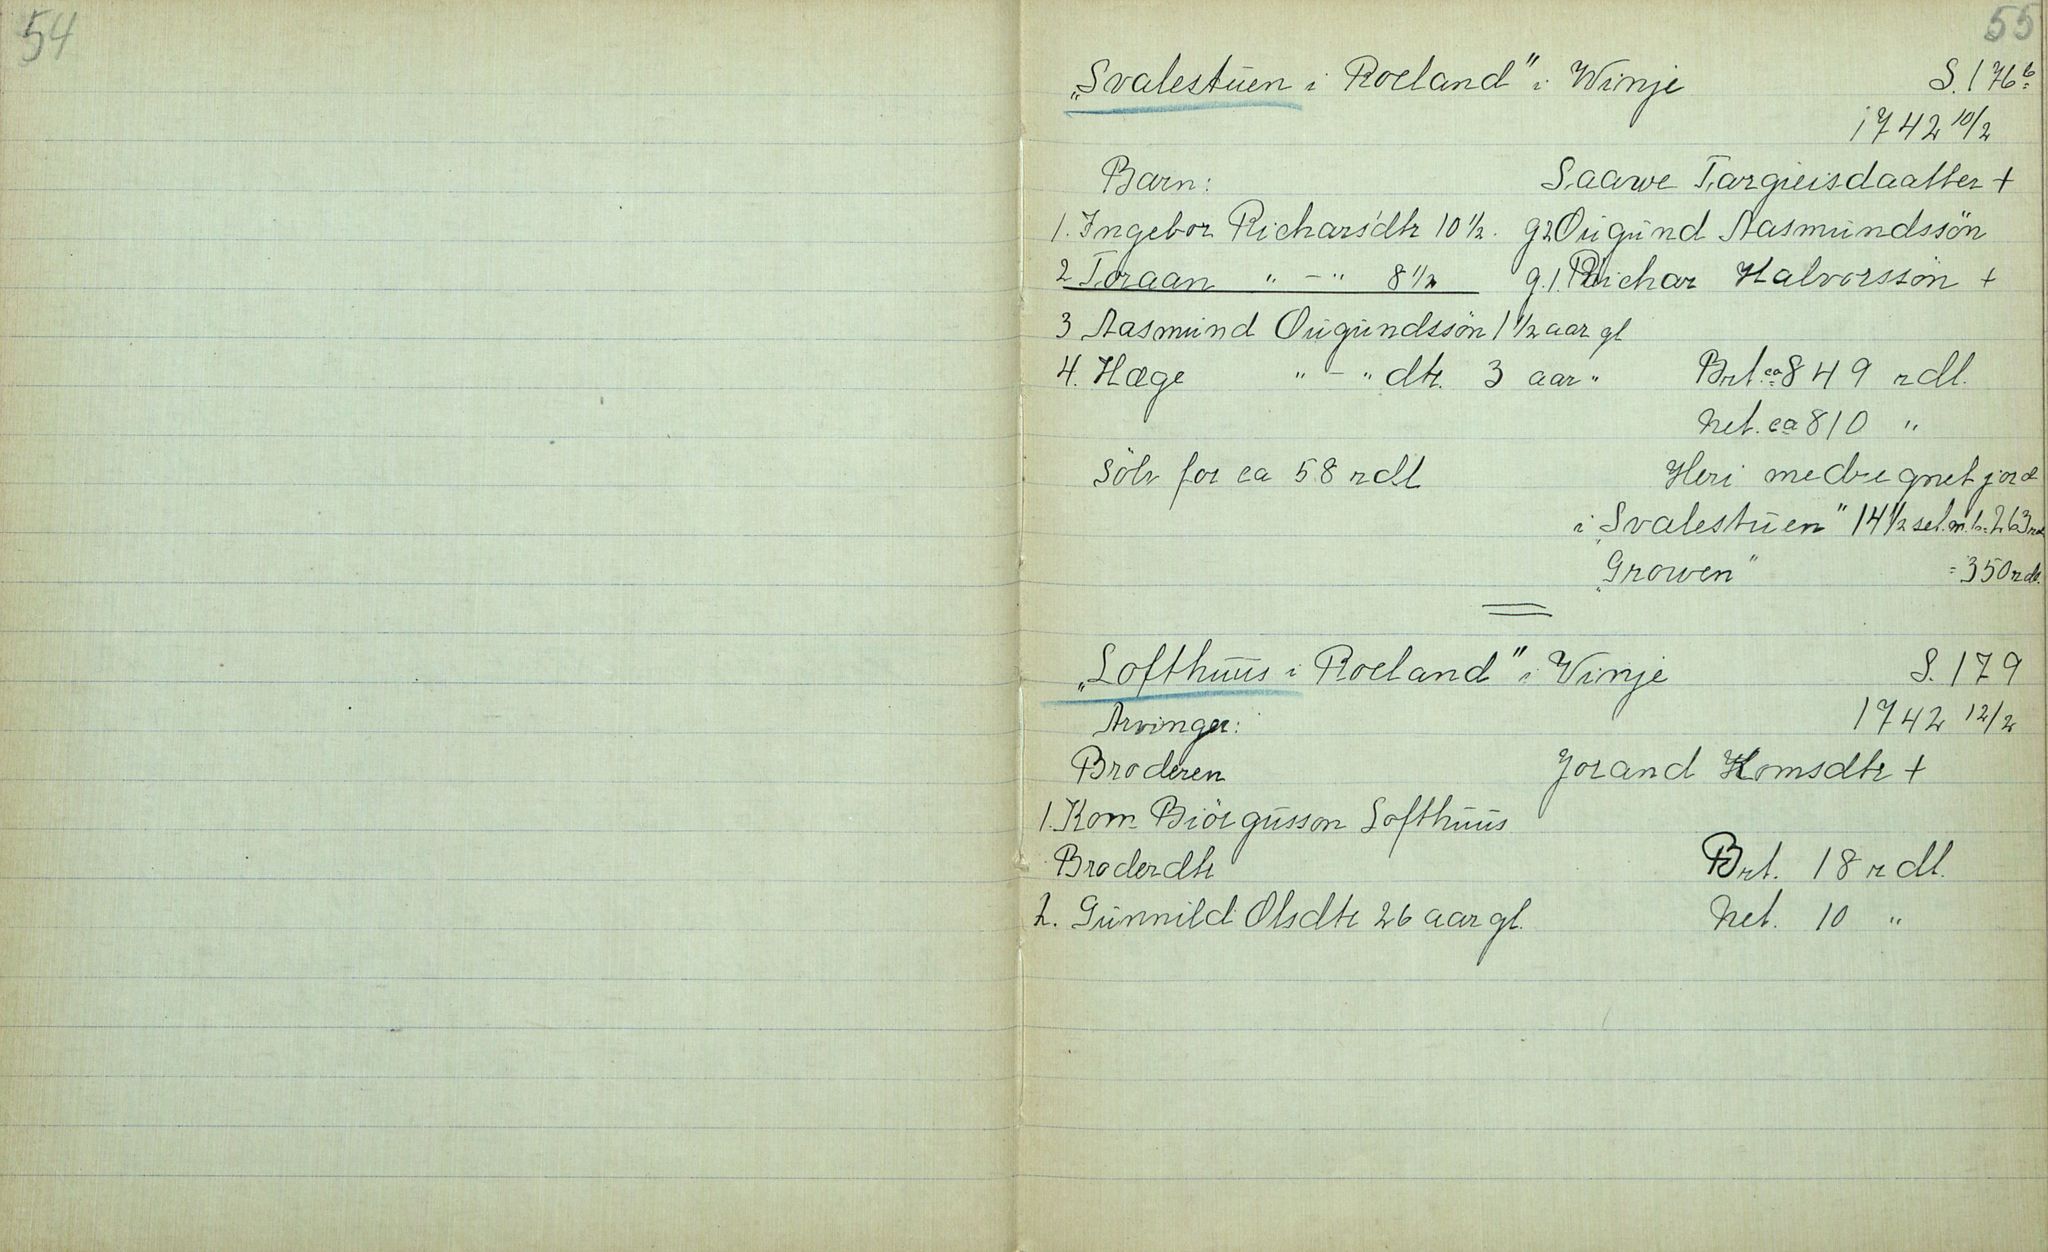 54
55
"Svalestuen i Roeland" i Winje S. 176b
1742 10/2
Barn: Saawe Targieisdaatter +
1. Ingebor Richarsdtr 10 1/2. g2 Ougund Aasmundssön
2 Toraan " - " 8 1/2 g.1. Richar Halvorssön +
3 Aasmund Ougundssön 1 1/2 aar gl
4. Hæge " - " dtr. 3 aar " Brt. ca 849 rdl.
Net. ca 810 "
Sölv for ca 58 rdl Heri medregnet jord
i "Svalestuen" 14 1/2 set. m. b. = 263 rdl
"Growen" = 350 rdl.
"Lofthuus i Roeland" i Vinje S. 179
Arvinger: 1742 12/2
Broderen Jorand Komsdtr +
1. Kom Biörgusson Lofthuus
Broderdtr Brt. 18 rdl.
2. Gunnild Olsdtr 26 aar gl. Net. 10 "